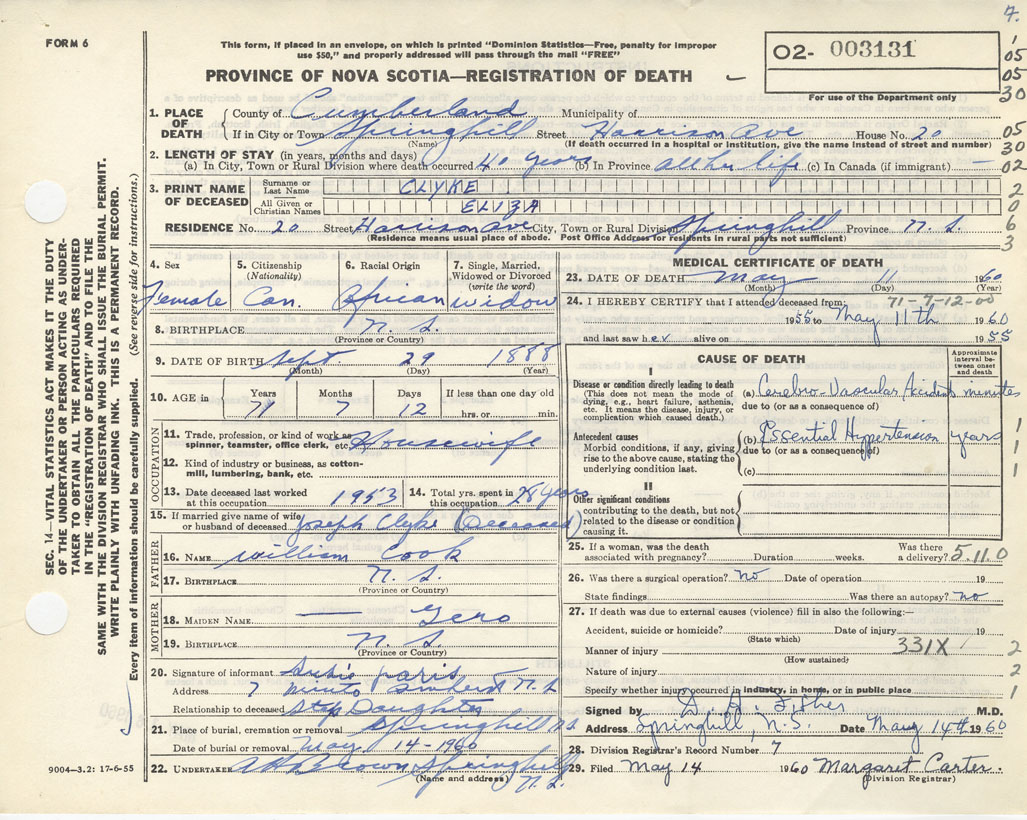 7.
FORM 6
This form, if placed in an envelope, on which is printed "Dominion Statistics—Free, penalty for improper
use $50," and properly addressed will pass through the mail "FREE"
O2- 003131
For use of the Department only
PROVINCE OF NOVA SCOTIA—REGISTRATION OF DEATH
1
05
05
30
05
30
02
2
0
6
3
1. PLACE OF DEATH
County of Cumberland Municipality of
If in City or Town Springhill Street Harrison Ave House No. 20
(Name) (If death occurred in a hospital or institution, give the name instead of street and number)
2. LENGTH OF STAY (in years, months and days)
(a) In City, Town or Rural Division where death occurred 40 years (b) In Province all her life (c) In Canada (if immigrant) —
3. PRINT NAME OF DECEASED
Surname or Last Name CLYKE
All Given or Christian Names ELIZA
RESIDENCE No. 20 Street Harrison Ave City, Town or Rural Division Springhill Province N. S.
(Residence means usual place of abode. Post Office Address for residents in rural parts not sufficient)
4. Sex 5. Citizenship 6. Racial Origin 7. Single, Married,
(Nationality) Widowed or Divorced
(write the word)
Female Can. African widow
8. BIRTHPLACE N. S.
(Province or Country)
9. DATE OF BIRTH Sept 29 1888
(Month) (Day) (Year)
10. AGE in Years Months Days If less than one day
71 7 12 hrs. or min.
OCCUPATION
11. Trade, profession, or kind of work as
spinner, teamster, office clerk, etc. Housewife
12. Kind of industry or business, as cotton-
mill, lumbering, bank, etc.
13. Date deceased last worked
at this occupation 1953
14. Total yrs. spent in
this occupation years
15. If married give name of wife
or husband of deceased Joseph Clyke (Deceased)
FATHER
16. NAME William Cook
17. BIRTHPLACE N. S.
(Province or Country)
MOTHER
18. MAIDEN NAME — Gero
19. BIRTHPLACE N. S.
(Province or Country)
20. Signature of informant Susie paris
Address 7 Minto Amherst N. S
Relationship to deceased Step Daughter
21. Place of burial, cremation or removal Springhill N.S.
Date of burial or removal May 14-1960
22. UNDERTAKER Brown Springhill
(Name and address) N. S.
MEDICAL CERTIFICATE OF DEATH
23. DATE OF DEATH May 11 1960
(Month) (Day) (Year)
71-7-12-00
24. I HEREBY CERTIFY that I attended deceased from;
1955 to May 11th 1960
and last saw her alive on 1955
CAUSE OF DEATH
Approximate
interval be-
tween onset
and death
I
Disease or condition directly leading to death
(This does not mean the mode of
dying, e.g., heart failure, asthenia,
etc. It means the disease, injury, or
complication which caused death.)
(a) Cerebro-Vascular Accident minutes
due to (or as a consequence of)
Antecedent causes
Morbid conditions, if any, giving
rise to the above cause, stating the
underlying condition last.
(b) Essential Hypertension years
due to (or as a consequence of)
(c)
1
1
1
II
Other significant conditions
contributing to the death, but not
related to the disease or condition
causing it.
25. If a woman, was the death
associated with pregnancy? Duration weeks. Was there
a delivery? 5.11.0
26. Was there a surgical operation? no Date of operation 19
State findings Was there an autopsy? no
27. If death was due to external causes (violence) fill in also the following:—
Accident, suicide or homicide? Date of injury 19
(State which)
Manner of injury 331X 2
(How sustained)
Nature of injury 2
Specify whether injury occurred in industry, in home, or in public place 1
Signed by D. A. Fisher M.D.
Address Springhill, N.S. Date May 14th 1960
28. Division Registrar's Record Number 7
29. Filed May 14 1960 Margaret Carter.
(Division Registrar)
SEC. 14—VITAL STATISTICS ACT MAKES IT THE DUTY
OF THE UNDERTAKER OR PERSON ACTING AS UNDER-
TAKER TO OBTAIN ALL THE PARTICULARS REQUIRED
IN THE "REGISTRATION OF DEATH" AND TO FILE THE
SAME WITH THE DIVISION REGISTRAR WHO SHALL ISSUE THE BURIAL PERMIT.
WRITE PLAINLY WITH UNFADING INK. THIS IS A PERMANENT RECORD.
Every item of information should be carefully supplied. (See reverse side for instructions.)
9004—3.2: 17-6-55